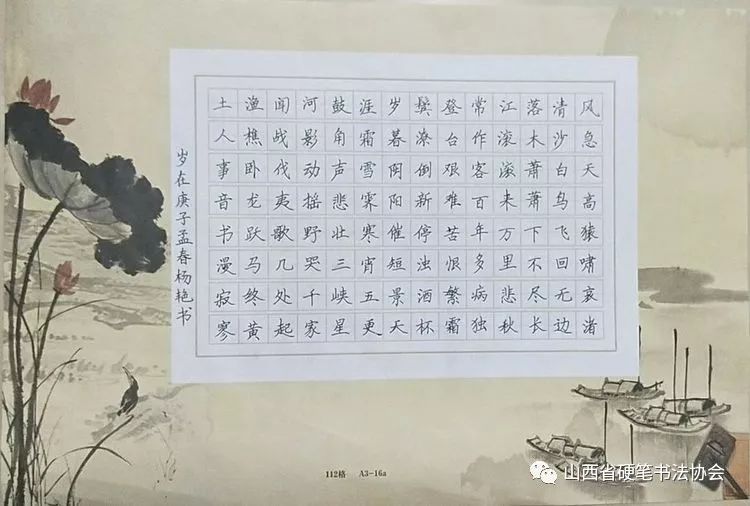 风急天高猿啸哀渚
清沙白鸟飞回无边
落木萧萧下不尽长
江滚滚来万里悲秋
常作客百年多病独
登台艰难苦恨繁霜
鬓潦倒新停浊酒杯
岁暮阴阳催短景天
涯霜雪霁寒宵五更
鼓角声悲壮三峡星
河影动摇野哭千家
闻战伐夷歌几处起
渔樵卧龙跃马终黄
土人事音书漫寂寥
岁在庚子孟春杨艳书
112格 A3-16a
山西省硬笔书法协会